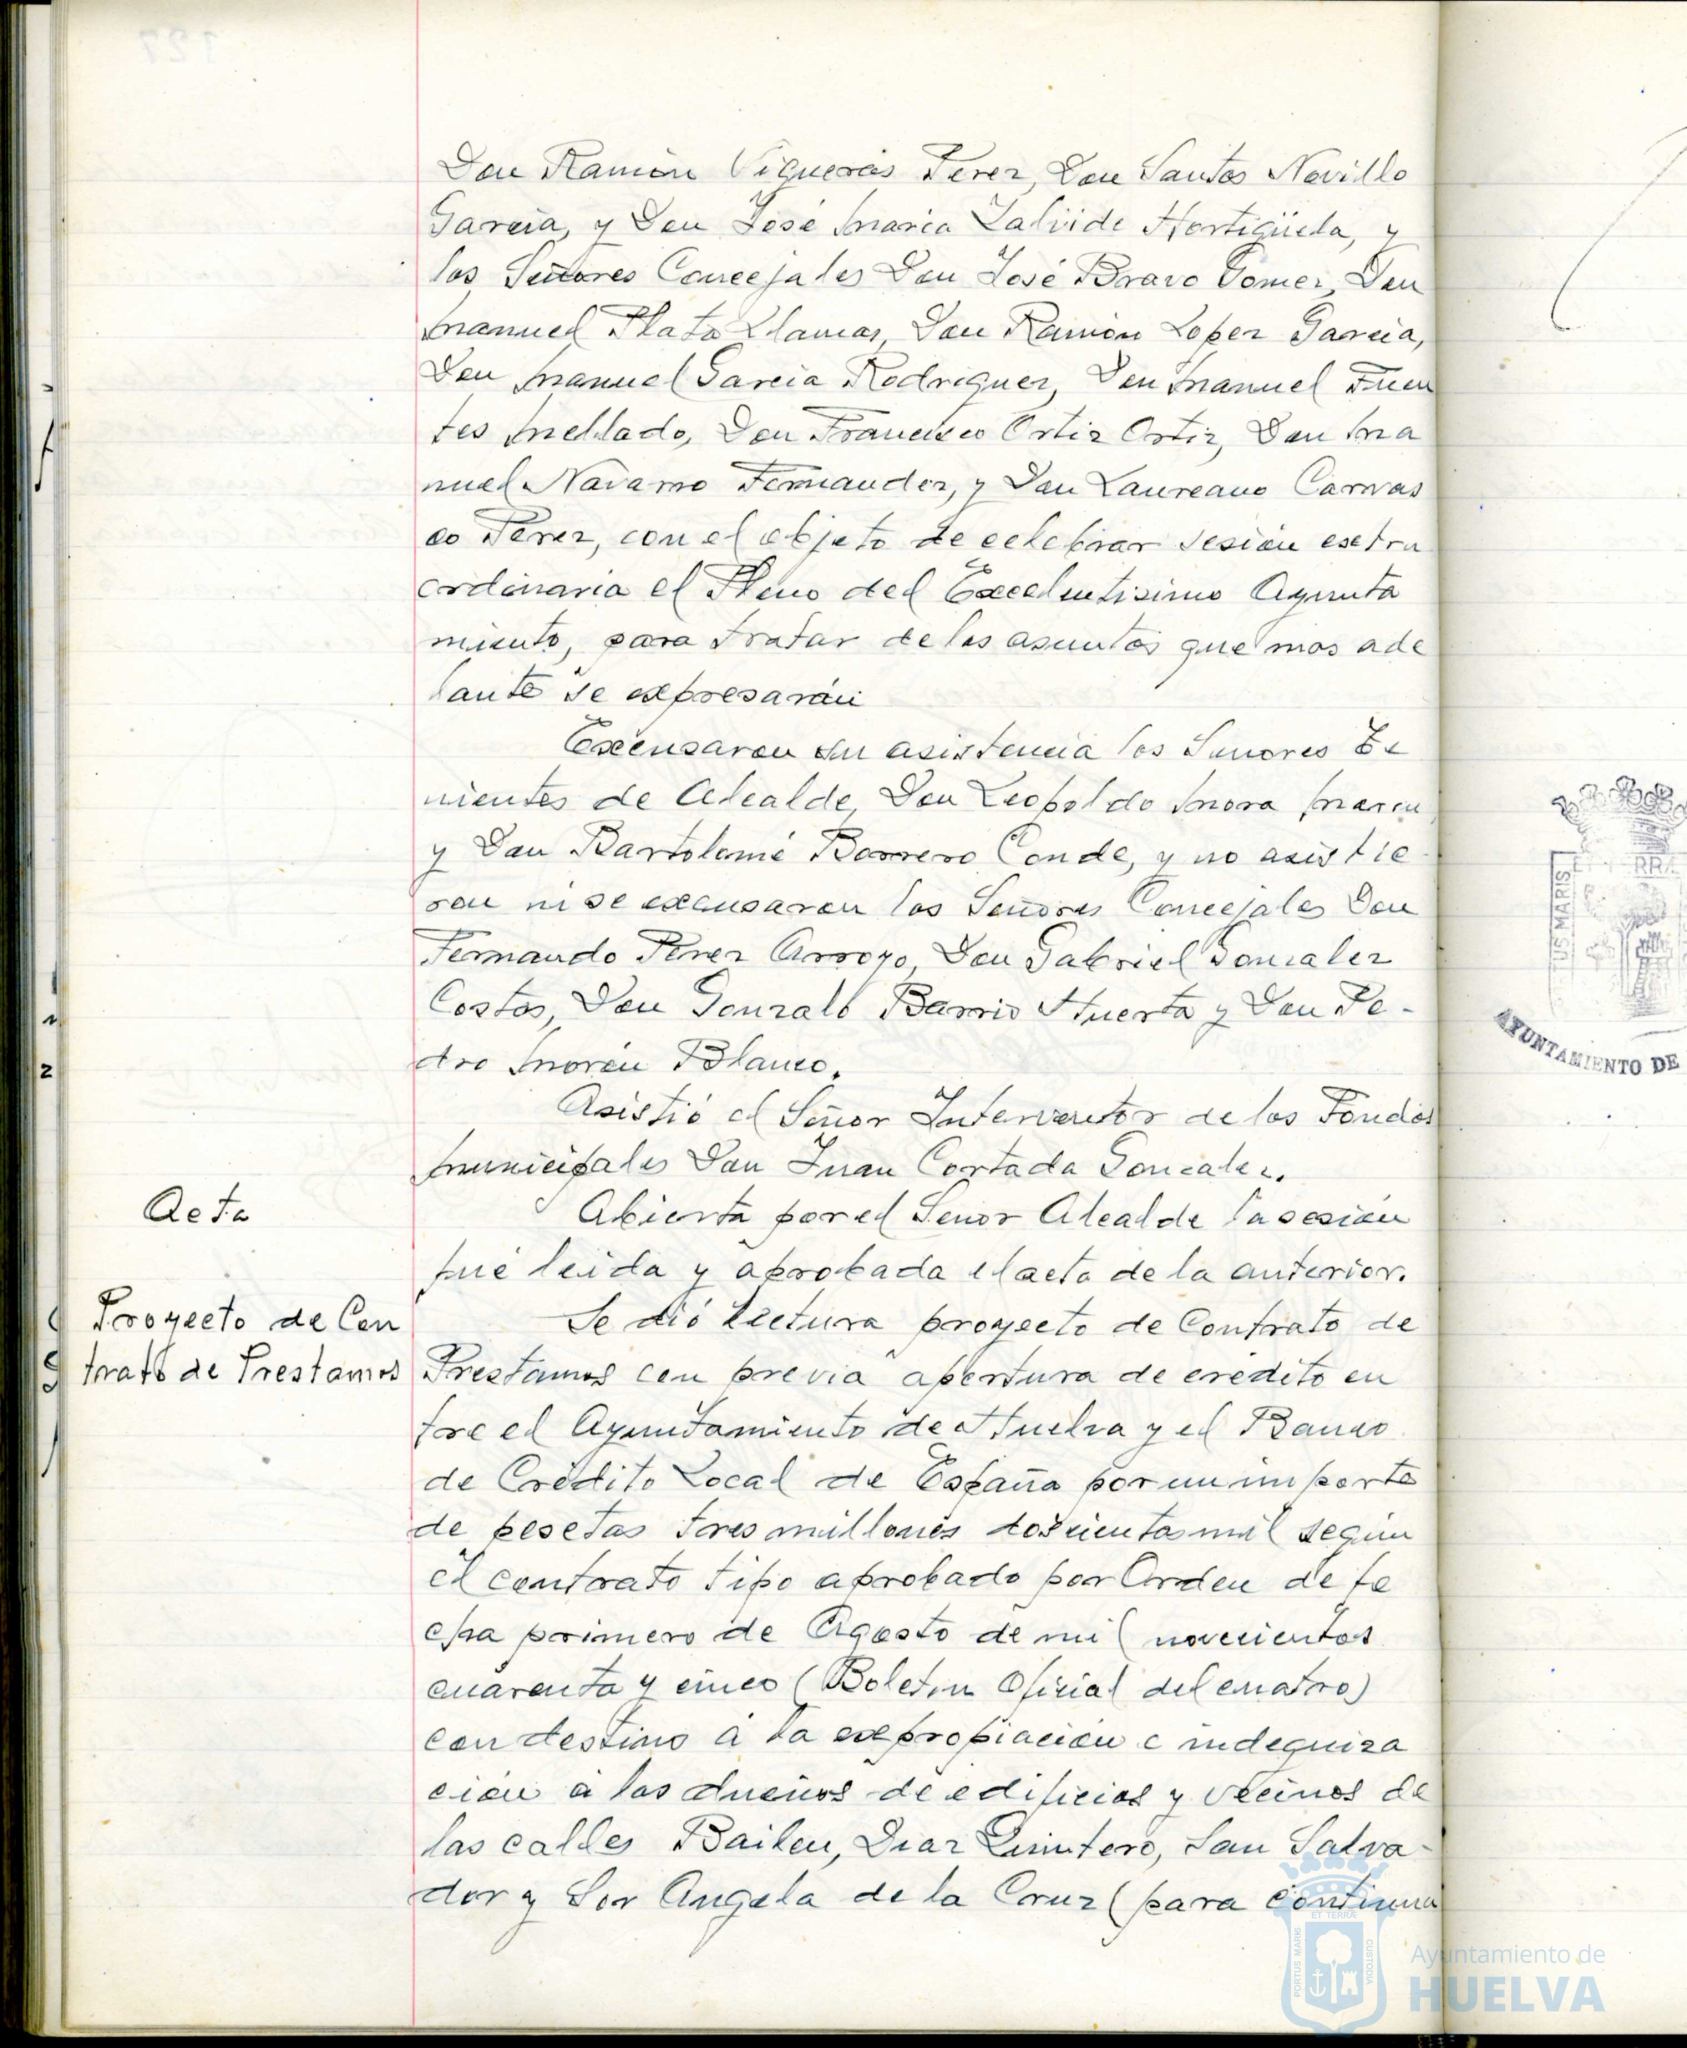 Don Ramón Vigueras Perez, Don Santos Novillo
García, y Don José Maria Zalvide Hortigüela, y
los Señores Concejales Don José Bravo Gomez, Don
Manuel Plata Llamas, Don Ramón Lopez Garcia,
Don Manuel Garcia Rodriguez, Don Manuel Fuen
tes Mellado, Don Francisco Ortiz Ortiz, Don Ma
nuel Navarro Fernandez, y Don Laureano Carras
co Perez, con el objeto de celebrar sesión extra
ordinaria el Pleno del Excelentisimo Ayunta
miento, para tratar de los asuntos que mas ade
lante se expresarán
Excusaron su asistencia los Señores Te
nientes de Alcalde, Don Leopoldo Mora
y Don Bartolomé Borrero Conde, y no asistie
ron ni se excusaron los Señores Concejales Don
Fernando Perez Arroyo, Don Gabriel Gonzalez
Costas, Don Gonzalo Barrio Huerta y Don Pe-
dro Morón Blanco.
Asistió el Señor Interventor de los Fondos
Municipales Don Juan Cortada Gonzalez.
Acta
Abierta por el Señor Alcalde la sesión
fué leida y aprobada el acta de la anterior.
Proyecto de Con
trato de Prestamos
Se dió lectura proyecto de Contrato de
Prestamos con previa apertura de credito en
tre el Ayuntamiento de Huelva y el Banco
de Crédito Local de España por un importe
de pesetas tres millones doscientas mil según
el contrato tipo aprobado por Orden de fe
cha primero de Agosto de mil novecientos
cuarenta y cinco (Boletin Oficial del cuatro)
con destino a la expropiación e indegniza
ción a los dueños de edificios y vecinos de
las calles Bailen, Diaz Quintero, San Salva-
dor y Sor Angela de la Cruz (para continua
US MARIS
RRA
AYUNTAMIENTO DE
PORTUS MARIS
ET TERRÆ
CUSTODIA
Ayuntamiento de
HUELVA